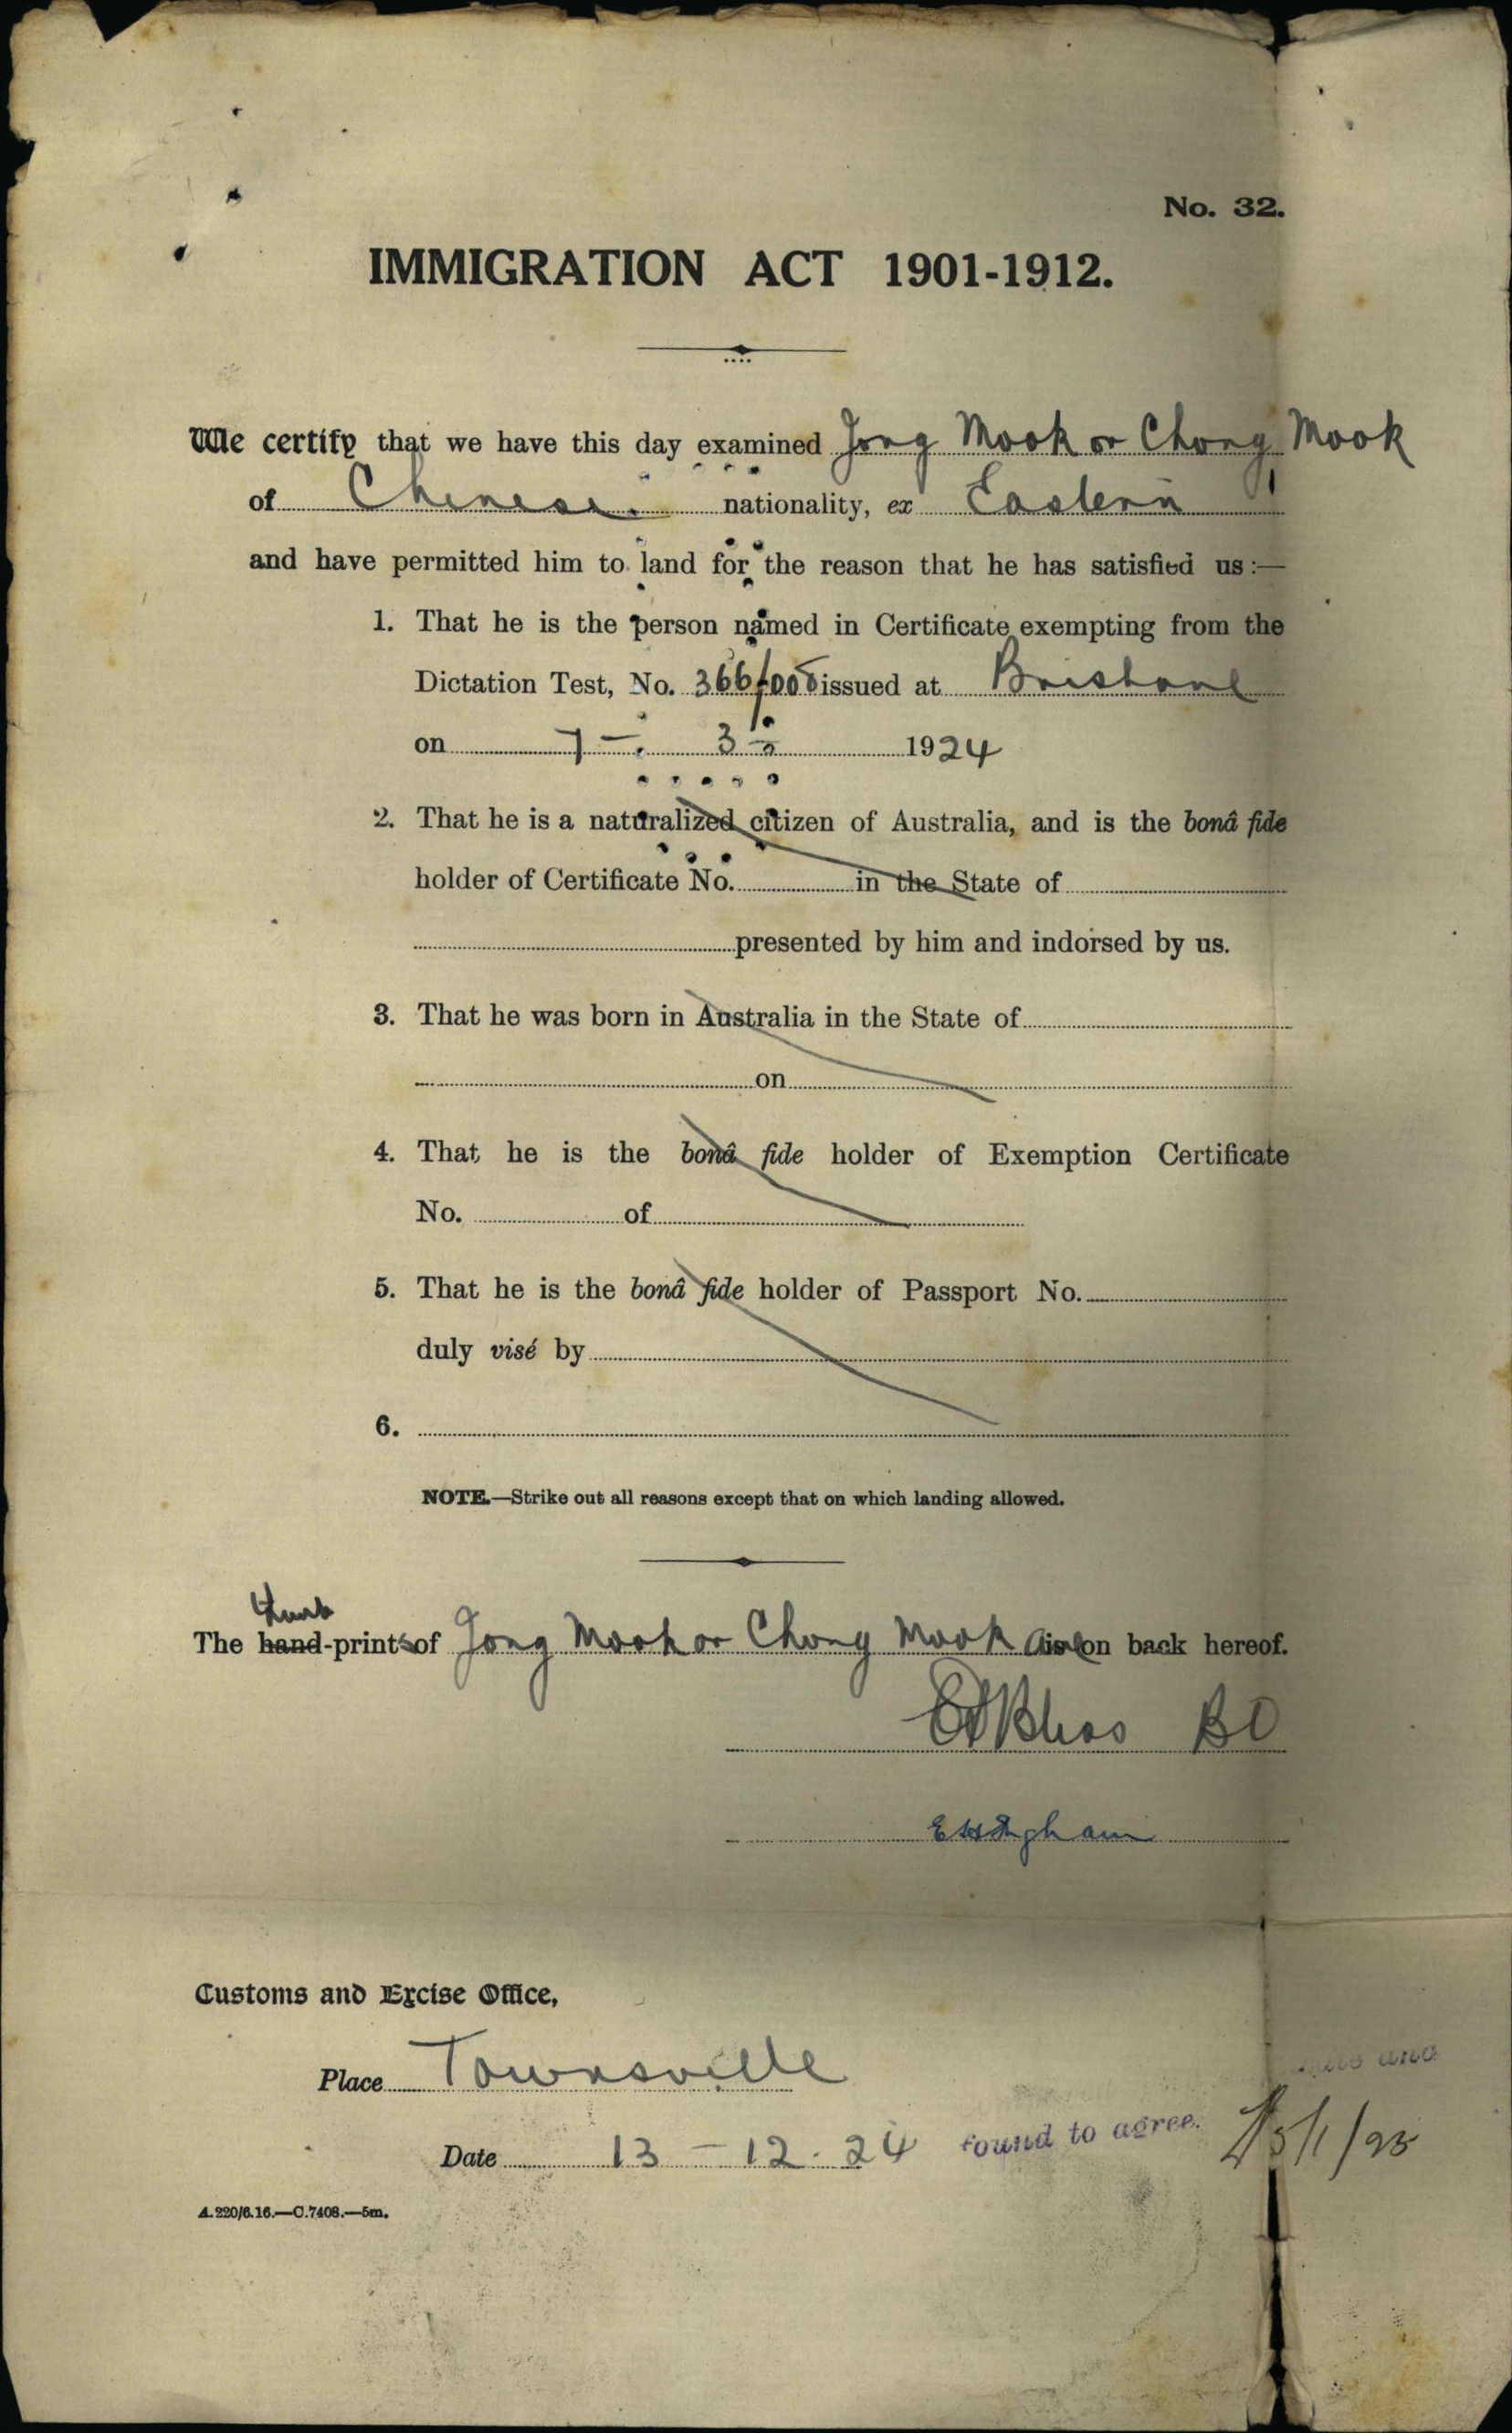 No. 32.
IMMIGRATION ACT 1901-1912.
We certify that we have this day examined Jong Mook or Chong Mook
of Chinese nationality, ex Eastern
and have permitted him to land for the reason that he has satisfied us:—
1. That he is the person named in Certificate exempting from the
Dictation Test, No. 366/005 issued at Brisbane
on 7 - 3 - 1924
2. That he is a naturalized citizen of Australia, and is the bonâ fide
holder of Certificate No. in the State of
presented by him and indorsed by us.
3. That he was born in Australia in the State of
on
4. That he is the bonâ fide holder of Exemption Certificate
No. of
5. That he is the bonâ fide holder of Passport No.
duly visé by
6.
NOTE.—Strike out all reasons except that on which landing allowed.
thumb
The hand-prints of Jong Mook or Chong Mook are on back hereof.
Customs and Excise Office,
Place Townsville
and
Date 13 - 12 - 24 found to agree.
A.220/6.16.—C.7408.—5m.